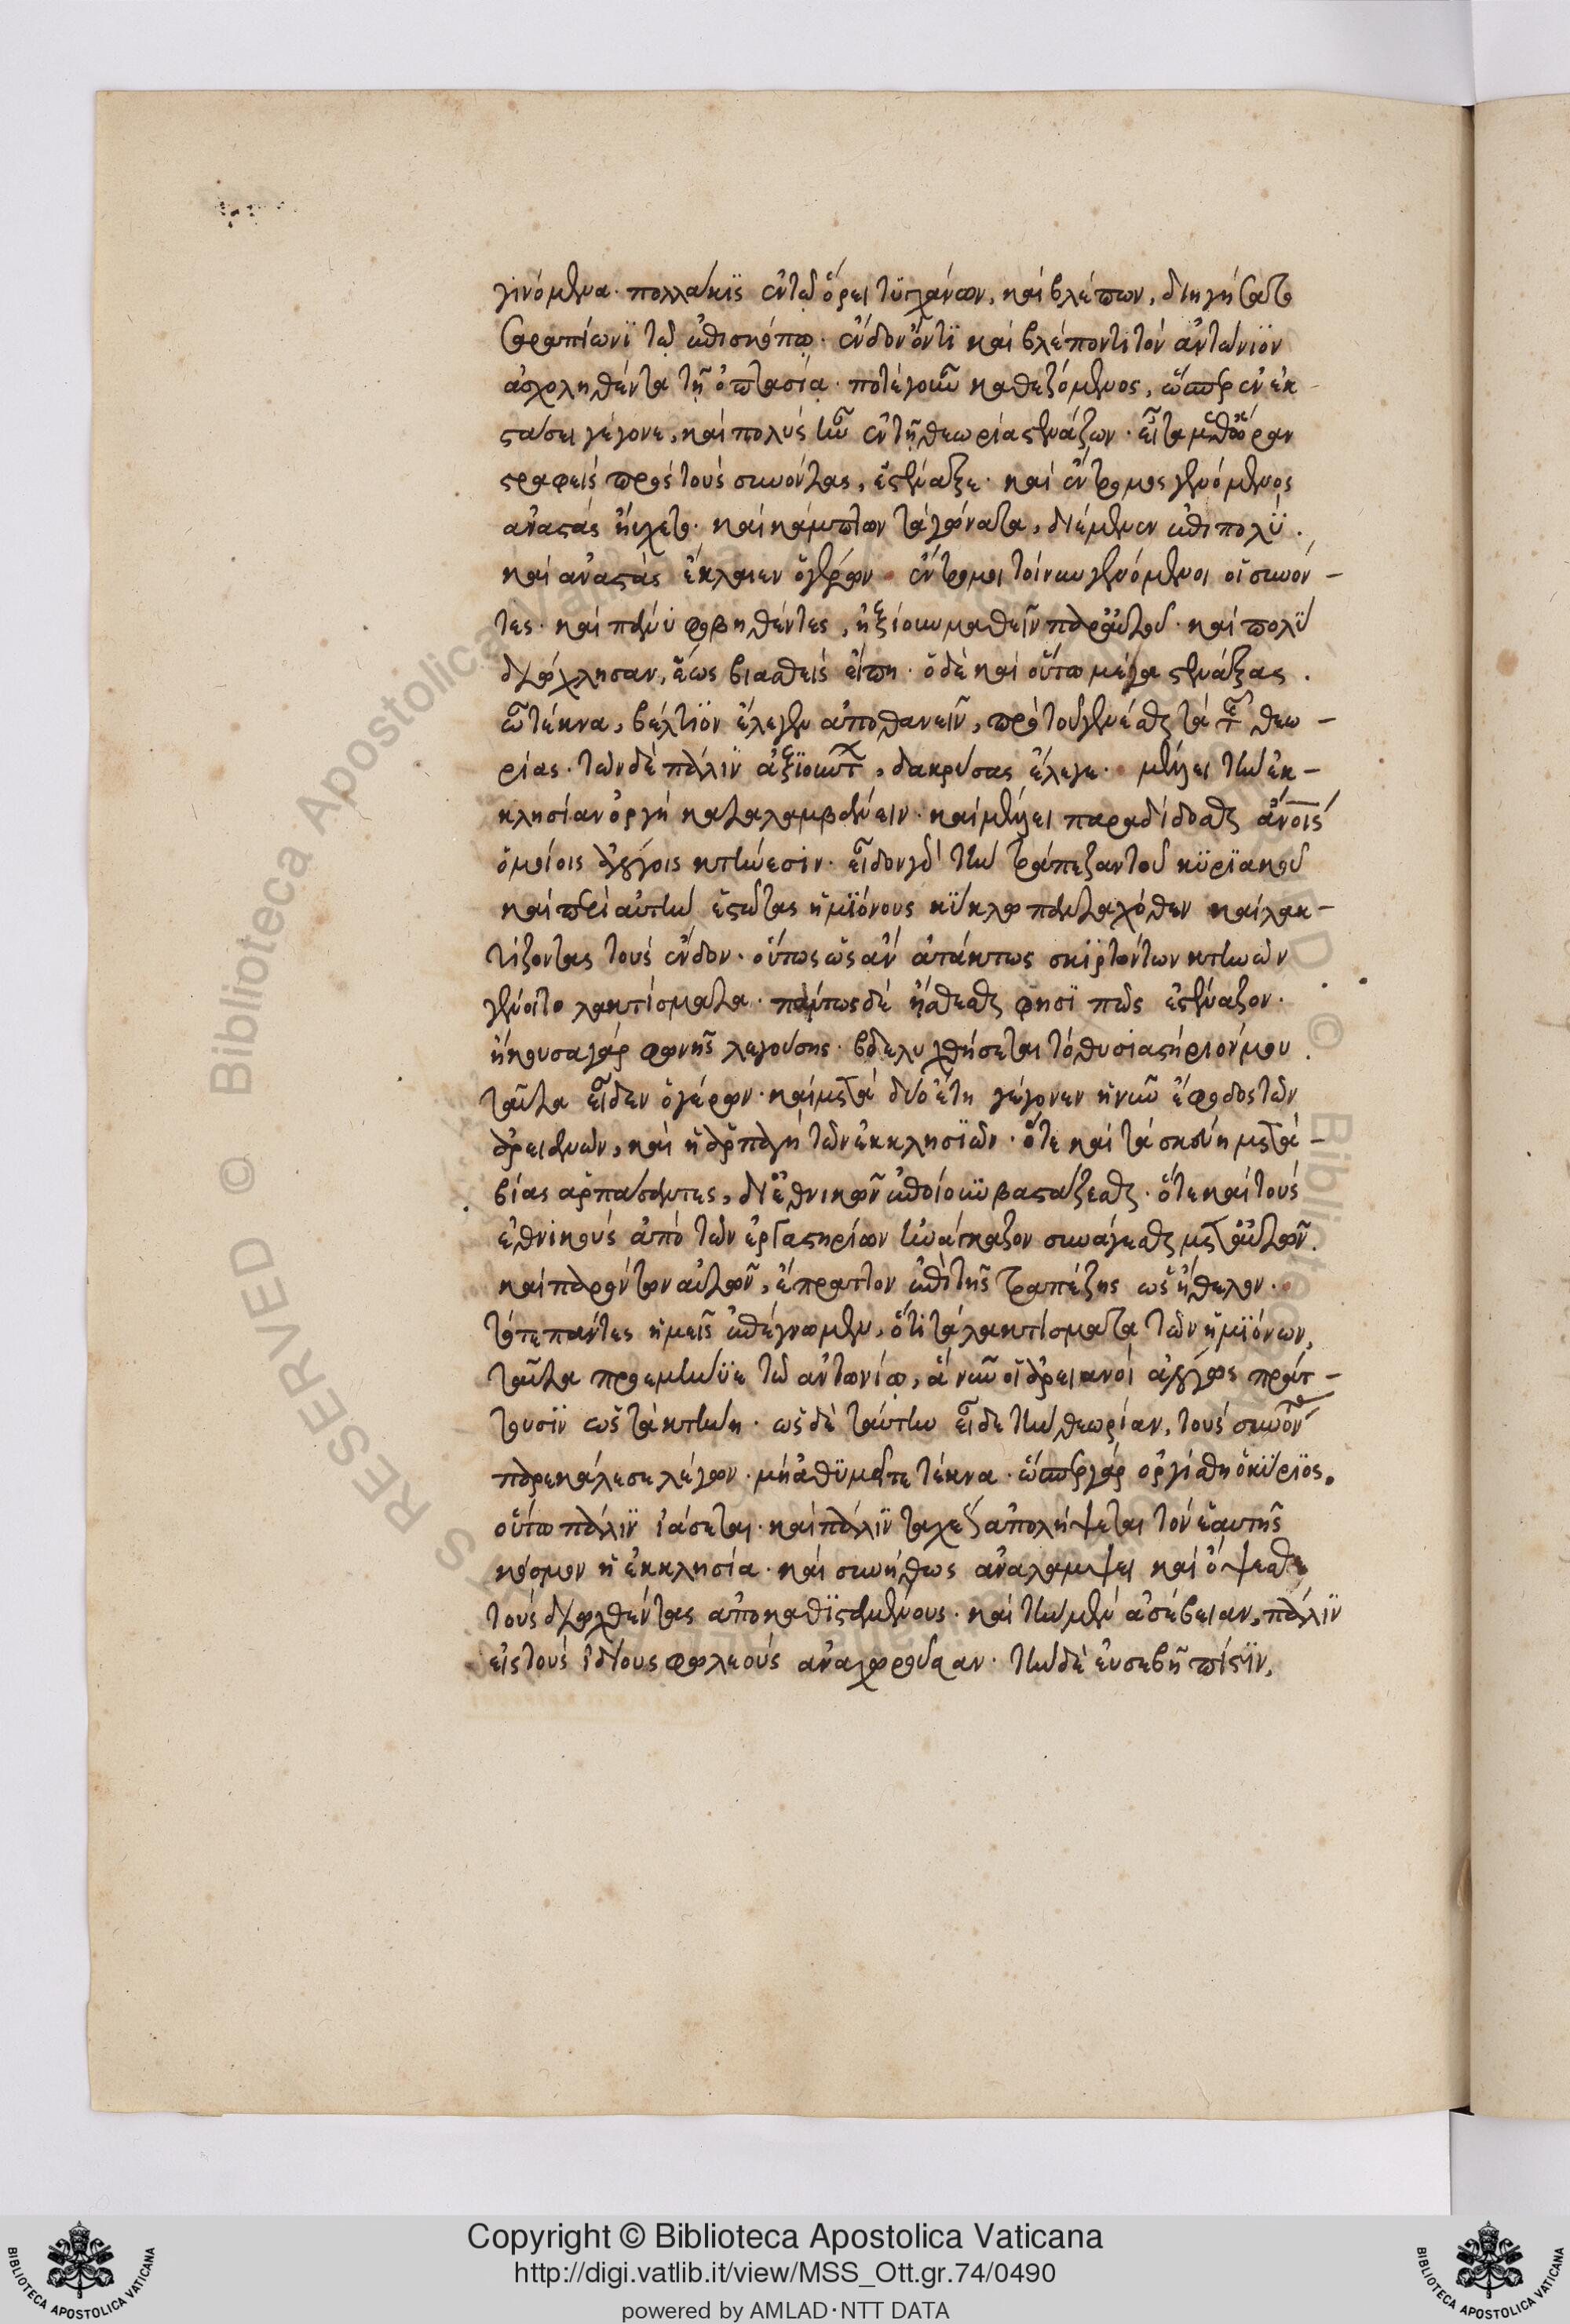 γινόμενα· πολλάκις ἐν τῷ ὄρει τυγχάνων, καὶ βλέπων, διηγήσατο
Σαραπίωνϊ τῷ ἐπισκόπῳ· ἔνδον ὄντϊ καὶ βλέποντι τὸν ἀντώνιον
ἀσχοληθέντα τῇ ὀπτασίᾳ· ποτὲ γοῦν καθεζόμενος, ὥσπερ ἐν ἐκ-
στάσει γέγονε, καὶ πολὺς ἦν ἐν τῇ θεωρίᾳ στενάζων· εἶτα μεθ' ὥραν
στραφεὶς πρὸς τοὺς συνόντας, ἐστέναξε· καὶ ἔντρομος γενόμενος
ἀναστὰς ηὔχετο· καὶ κάμπτων τὰ γόνατα, διέμενεν ἐπι πολύ.
καὶ ἀναστὰς ἔκλαιεν ὁ γέρων· ἔντρομοι τοίνυν γενόμενοι οἱ συνόν-
τες· καὶ πάνυ φοβηθέντες, ἠξίουν μαθεῖν παρ' αὐτοῦ· καὶ πολὺ
διώχλησαν, ἕως βιασθεὶς εἴπη· ὁ δὲ καὶ οὕτω μέγα στενάξας.
ὦ τέκνα, βέλτϊον ἔλεγεν ἀποθανεῖν, πρὸ τοῦ γενέσθαι τὰ τῆς θεω-
ρίας· τῶν δὲ πάλιν ἀξιούντων, δακρύσας ἔλεγε· μέλλει τὴν ἐκ-
κλησίαν ὀργὴ καταλαμβάνειν· καὶ μέλλει παραδίδοσθαι ἀνοις
ὁμοίοις ἀλόγοις κτήνεσιν· εἶδον γὰρ τὴν τράπεζαν τοῦ κϋρϊακοῦ
καὶ περὶ αὐτὴν ἑστῶτας ἡμϊόνους κύκλῳ πανταχόθεν καὶ λακ-
τίζοντας τοὺς ἔνδον· οὕτως ὡς ἂν ἀτάκτως σκιρτώντων κτηνῶν
γένοιτο λακτίσματα· πάντως δὲ ᾔσθεσθαι φησὶ πῶς ἐστέναζον·
ἤκουσα γὰρ φωνῆς λεγούσης· βδελυχθήσεται τὸ θυσιαστήριόν μου.
ταῦτα εἶδεν ὁ γέρων· καὶ μετὰ δύο ἔτη γέγονεν ἡ νῦν ἔφοδος τῶν
ἀρειανῶν, καὶ ἡ ἁρπαγὴ τῶν ἐκκλησϊῶν· ὅτε καὶ τὰ σκεύη μετὰ
βίας ἁρπάσαντες, δι' ἐθνικῶν ἐποίουν βαστάζεσθαι· ὅτε καὶ τοὺς
ἐθνικοὺς ἀπὸ τῶν ἐργαστηρίων ἠνάγκαζον συνάγεσθαι μετ' αὐτῶν.
καὶ παρόντων αὐτῶν, ἔπραττον ἐπὶ τῆς τραπέζης ὡς ἤθελον·
τότε πάντες ἡμεῖς ἐπέγνωμεν, ὅτι τὰ λακτίσματα τῶν ἡμϊόνων,
ταῦτα προεμήνυε τῷ ἀντωνίῳ, ἃ νῦν οἱ ἀρειανοὶ ἀλόγως πράτ-
τουσϊν ὡς τὰ κτήνη· ὡς δὲ ταύτην εἶδε τὴν θεωρίαν, τοὺς συνόντας
παρεκάλεσε λέγων· μὴ ἀθϋμεῖτε τέκνα· ὥσπερ γὰρ ὀργίσθη ὁ κύριος.
οὕτω πάλϊν ἰάσεται· καὶ πάλϊν ταχέως ἀπολήψεται τὸν ἑαυτῆς
κόσμον ἡ ἐκκλησία· καὶ συνήθως ἀναλάμψει καὶ ὄψεσθε
τοὺς διωχθέντας ἀποκαθϊσταμένους· καὶ τὴν μὲν ἀσέβειαν, πάλϊν
εἰς τοὺς ἰδίους φωλεοὺς ἀναχωροῦσαν· τὴν δὲ εὐσεβῆ πίστϊν,
Copyright © Biblioteca Apostolica Vaticana
http://digi.vatlib.it/view/MSS_Ott.gr.74/0490
powered by AMLAD·NTT DATA
BIBLIOTECA APOSTOLICA VATICANA
BIBLIOTECA APOSTOLICA VATICANA